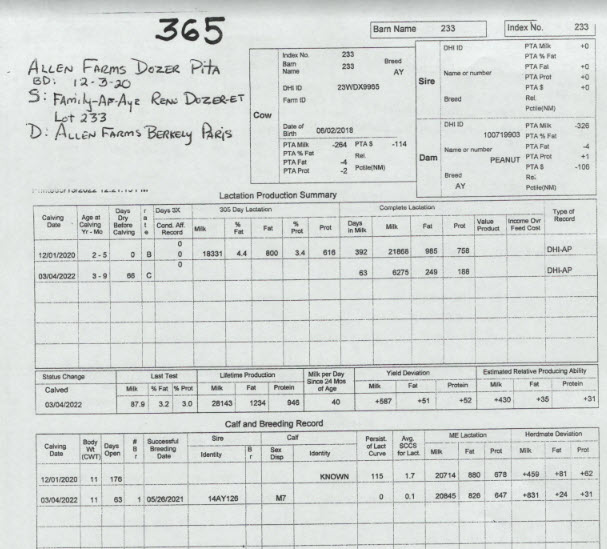 365
Barn Name 233
Index No. 233
ALLEN FARMS DOZER PITA
BD: 12-3-20
S: FAMILY-AF-AYR RENO DOZER-ET
Lot 233
D: ALLEN FARMS BERKELY PARIS
Cow
Index No. 233
Barn Name 233
Breed AY
DHI ID 23WDX9955
Farm ID
Date of Birth 06/02/2018
PTA Milk -264 PTA $ -114
PTA % Fat Rel.
PTA Fat -4
PTA Prot -2 Pctile(NM)
Sire
DHI ID PTA Milk +0
PTA % Fat
Name or number PTA Fat +0
PTA Prot +0
PTA $ +0
Breed Rel.
Pctile(NM)
Dam
DHI ID PTA Milk -326
100719903 PTA % Fat
Name or number PTA Fat -4
PEANUT PTA Prot +1
PTA $ -106
Breed Rel.
AY Pctile(NM)
Lactation Production Summary
Calving Date
Age at Calving Yr - Mo
Days Dry Before Calving
r a t e
Days 3X
Cond. Aff. Record
305 Day Lactation
Milk % Fat Fat % Prot Prot
Complete Lactation
Days in Milk Milk Fat Prot
Value Product
Income Ovr Feed Cost
Type of Record
0
12/01/2020 2 - 5 0 B 0 18331 4.4 800 3.4 616 392 21866 985 758 DHI-AP
0
03/04/2022 3 - 9 66 C 63 6275 249 188 DHI-AP
Status Change
Last Test
Lifetime Production
Milk per Day Since 24 Mos of Age
Yield Deviation
Estimated Relative Producing Ability
Calved Milk % Fat % Prot Milk Fat Protein Milk Fat Protein Milk Fat Protein
03/04/2022 87.9 3.2 3.0 28143 1234 946 40 +587 +51 +52 +430 +35 +31
Calf and Breeding Record
Calving Date
Body Wt (CWT)
Days Open
# B r
Successful Breeding Date
Sire
Identity
B r
Calf
Sex Disp
Identity
Persist. of Lact Curve
Avg. SCCS for Lact.
ME Lactation
Milk Fat Prot
Herdmate Deviation
Milk Fat Prot
12/01/2020 11 176 KNOWN 115 1.7 20714 880 678 +459 +81 +62
03/04/2022 11 63 1 05/26/2021 14AY126 M7 0 0.1 20845 826 647 +831 +24 +31